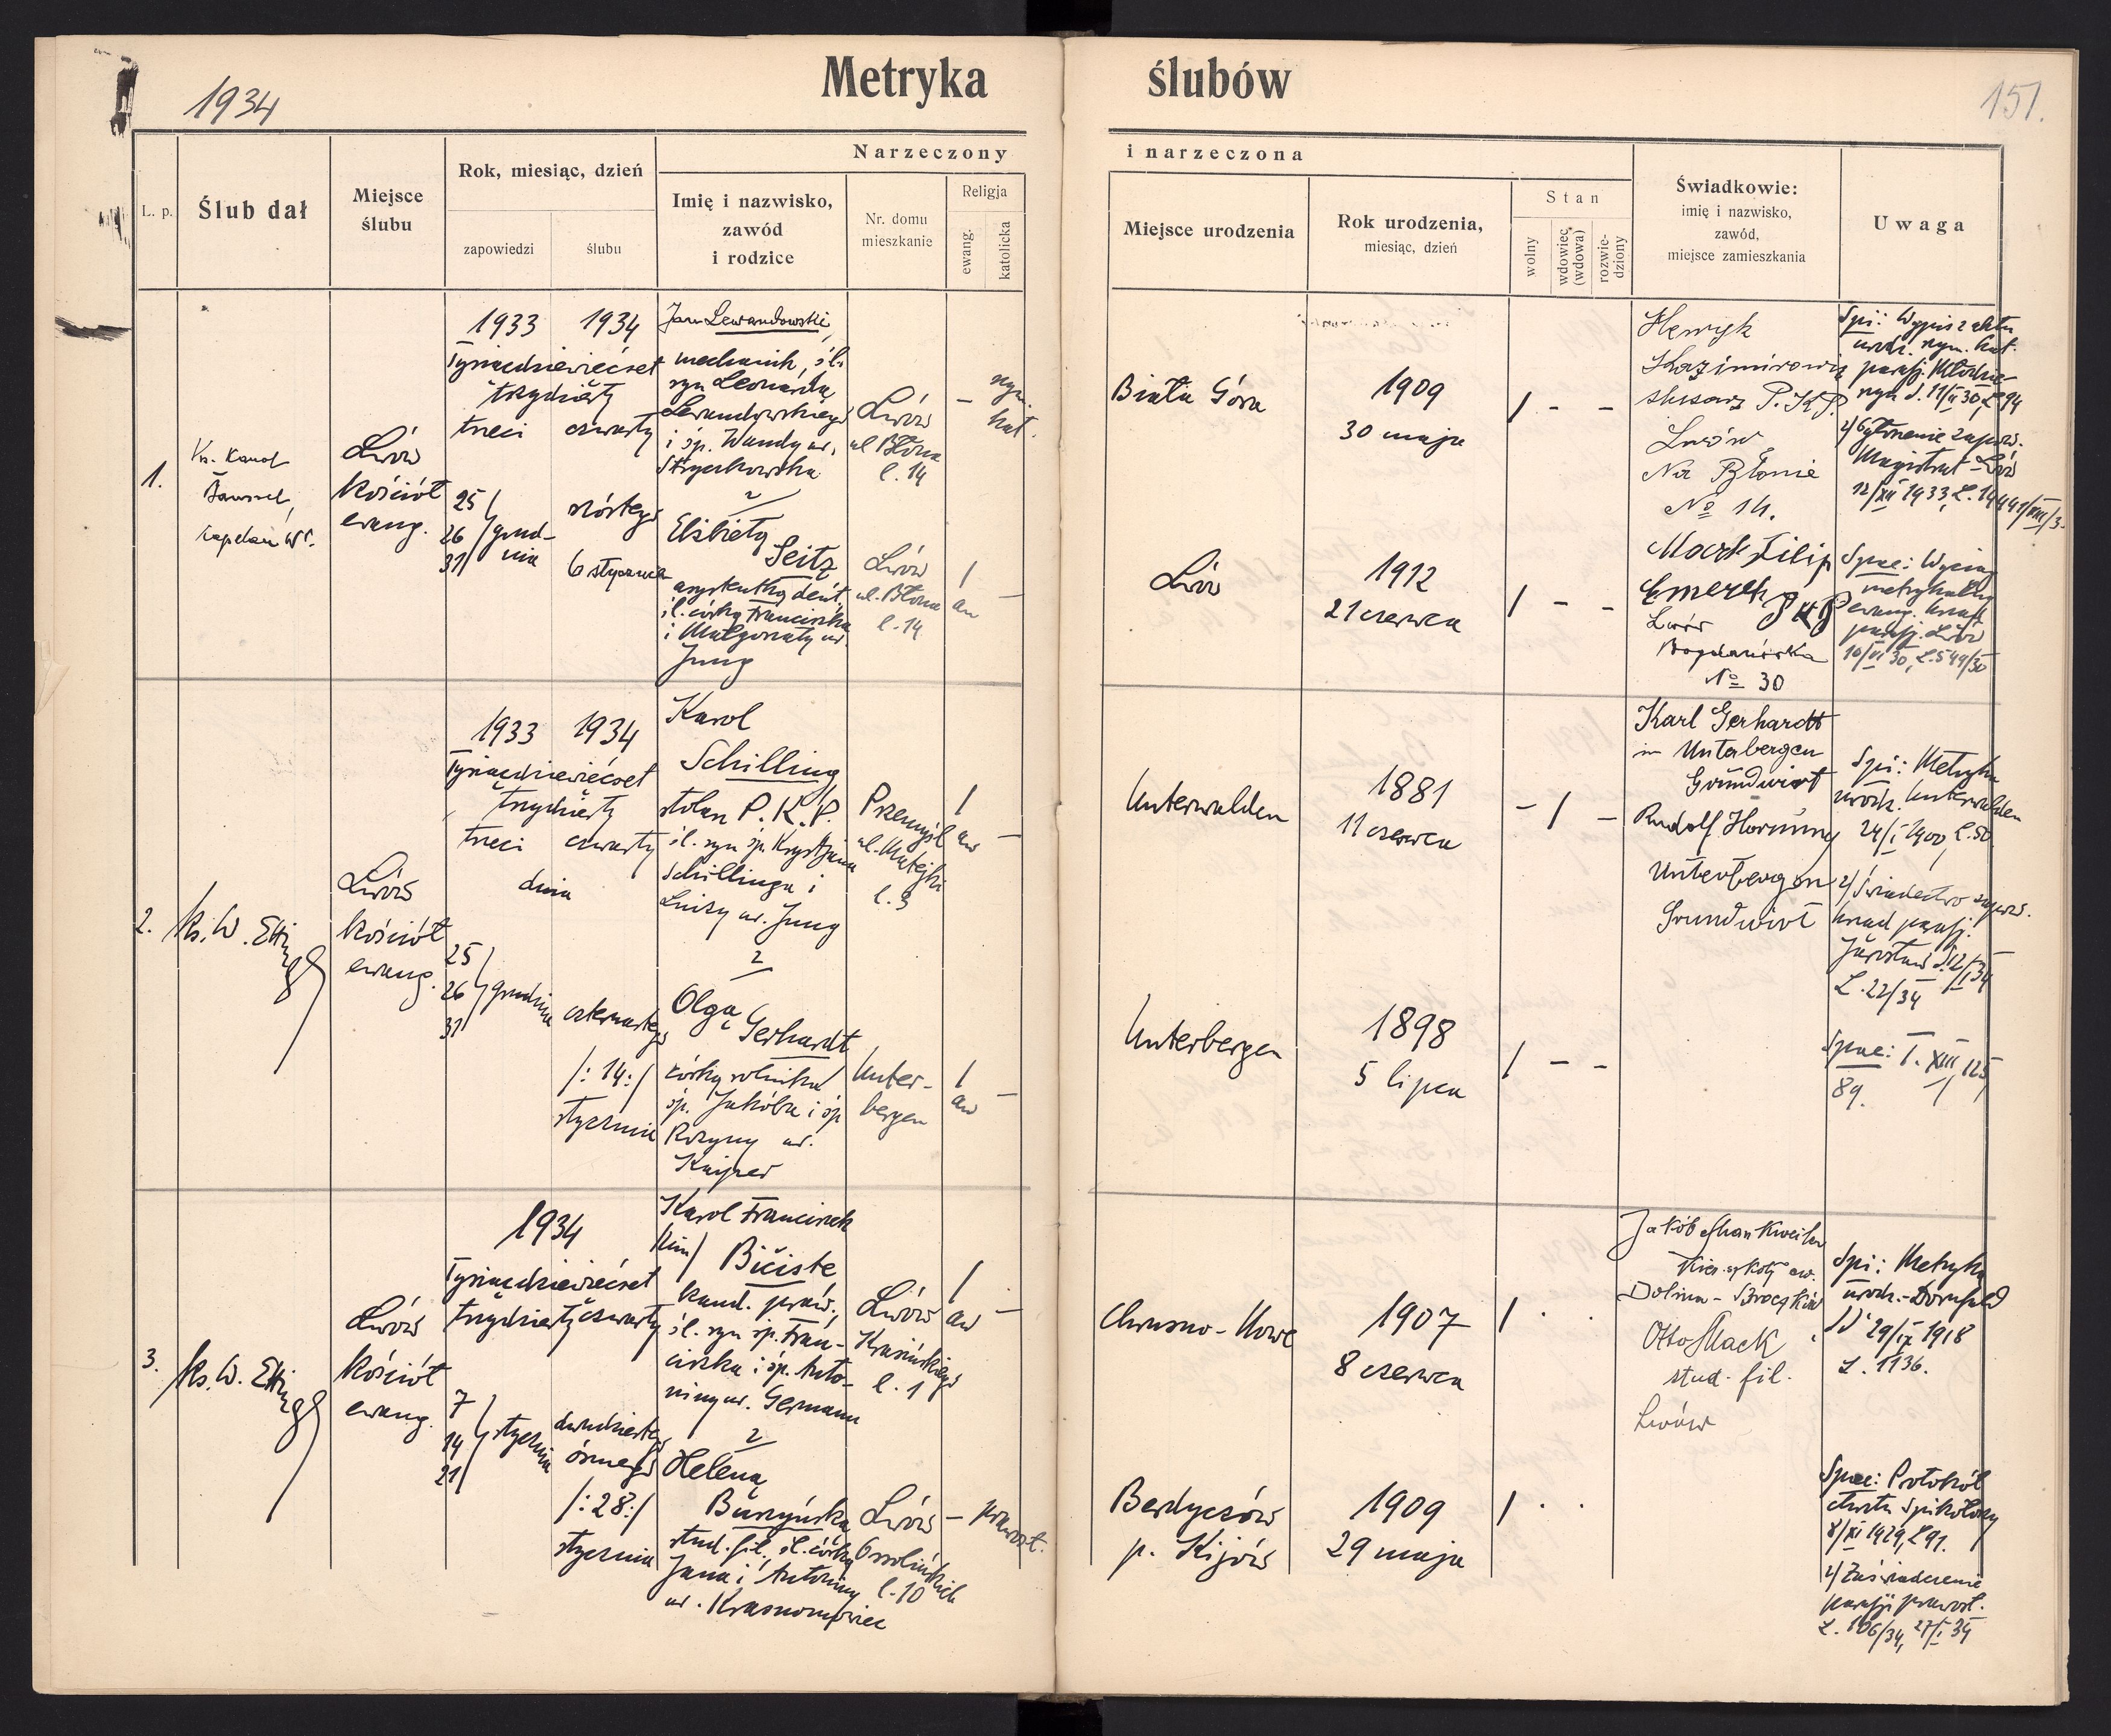 Metryka ślubów
1934
151.
L. p.
Ślub dał
Miejsce
ślubu
Rok, miesiąc, dzień
zapowiedzi
ślubu
Narzeczony
Imię i nazwisko,
zawód
i rodzice
Nr. domu
mieszkanie
Religja
ewang.
katolicka
i narzeczona
Miejsce urodzenia
Rok urodzenia,
miesiąc, dzień
Stan
wolny
wdowiec
(wdowa)
rozwie-
dziony
Świadkowie:
imię i nazwisko,
zawód,
miejsce zamieszkania
Uwaga
1.
Ks. Karol
kapelan W.P.
Lwów
kościół
ewang.
1933 1934
Tysiącdziewięćset
trzydziesty
trzeci czwarty
25
26 grud-
31 nia
szóstego
6 stycznia
Jan Lewandowski,
mechanik, śl.
syn Leonarda
Lewandowskiego
i śp. Wandy ur.
z
Elżbietą
Seitz
asystentką dent.
śl. córką Franciszka
i Małgorzaty ur.
Jung
Lwów
ul. Błonie
l. 14
Lwów
ul. Błonie
l. 14
– rzym.
kat.
/ –
aw
Biała Góra
1909
30 maja
/ - -
Lwów
1912
21 czerwca
/ - -
Henryk
Kazimirowicz
ślusarz P.K.P.
Lwów
Na Błonie
№ 14.
Mack Filip
Emeryt P.K.P.
Lwów
Bogdanówka
№ 30
Spi: Wypis z aktu
urodz. rzym. kat.
paraf.
2/ Ogłoszenie zapow.
Magistrat - Lwów
12/XII 1933,
Spne: Wyciąg
metrykalny
ewang.
paraf. Lwów
10/VI 30, L. 549/30
2.
ks. W. Ettinger
Lwów
kościół
ewang.
1933 1934
Tysiącdziewięćset
trzydziesty
trzeci czwarty
dnia
25
26 grudnia
31
czternastego
/: 14 :/
stycznia
Karol
Schilling
stolarz P.K.P.
śl. syn śp. Krystjana
Schillinga i
Luizy ur. Jung
z
Olgą
Gerhardt
córką rolnika
śp. Jakóba i śp.
Rozyny ur.
Kniper
Przemyśl
ul. Matejki
l. 3
Unter-
bergen
/ –
aw
/ –
aw
Unterwalden
1881
11 czerwca
- / -
Unterbergen
1898
5 lipca
/ - -
Karl Gerhardt
in Unterbergen
Grundwirt
Rudolf Hornung
Unterbergen
Grundwirt
Spi: Metryka
urodz. Unterwalden
24/I 1900, L. 50.
2/ Świadectwo zapow.
urząd paraf.
Jarosław d. 12/I 34
L. 22/34
Spne: T. XIII, 125
89.
3.
ks. W. Ettinger
Lwów
kościół
ewang.
1934
Tysiącdziewięćset
trzydziesty czwarty
7
14 stycznia
21
dwudziestego
ósmego
/: 28 :/
stycznia
Karol Franciszek
/im/ Bičiste
kand. praw.
śl. syn śp. Fran-
ciszka i śp. Anto-
niny ur. Germann
z
Heleną
Burzyńską
stud. fil. śl. córką
Jana i Antoniny
ur.
Lwów
Krasińskiego
l. 1
Lwów
Ossolińskich
l. 10
/ –
aw
– prawosł.
Chrusno-Nowe
1907
8 czerwca
/ . .
Berdyczów
p. Kijów
1909
29 maja
/ . .
Jakób Mankweiler
Kier. szkoły ew.
Dolina - Broczków
Otto Mack
stud. fil.
Lwów
Spi: Metryka
urodz. - Dornfeld
d. 29/IX 1918
L. 1136.
Spne: Protokół
chrztu
8/XI 1929, L. 91.
2/ Zaświadczenie
parafji prawosł.
L. 106/34, 27/I 34